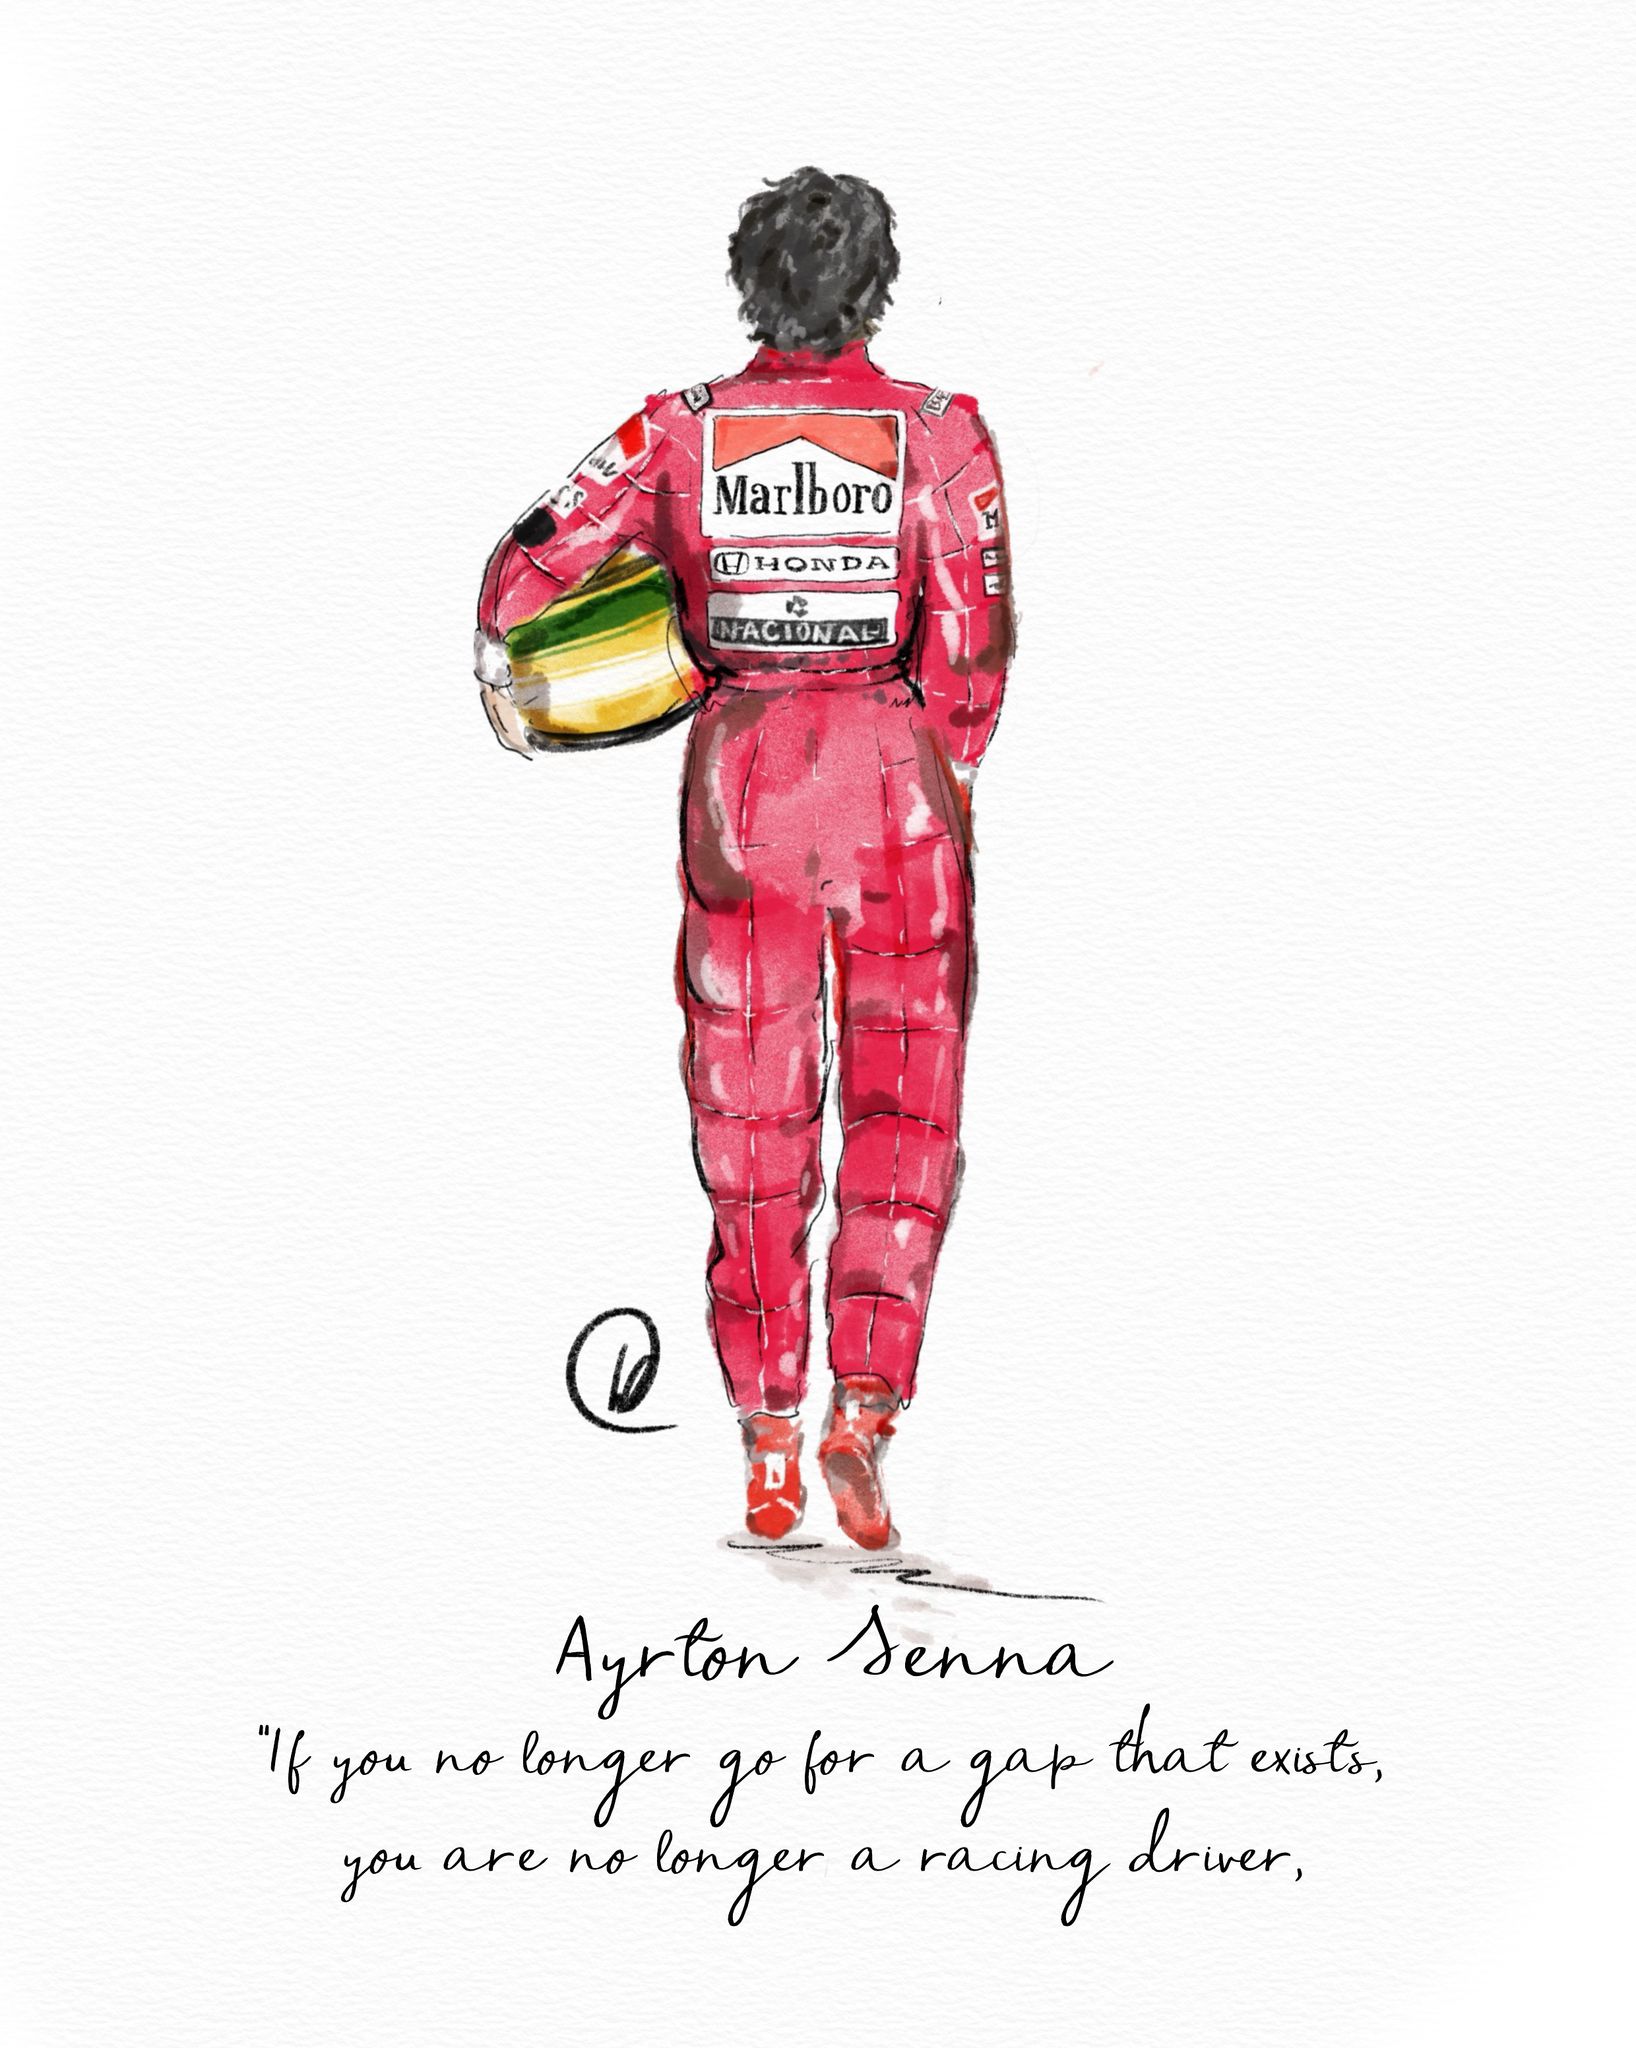 Marlboro
HONDA
NACIONAL
M
Ayrton Senna
"If you no longer go for a gap that exists,
you are no longer a racing driver,